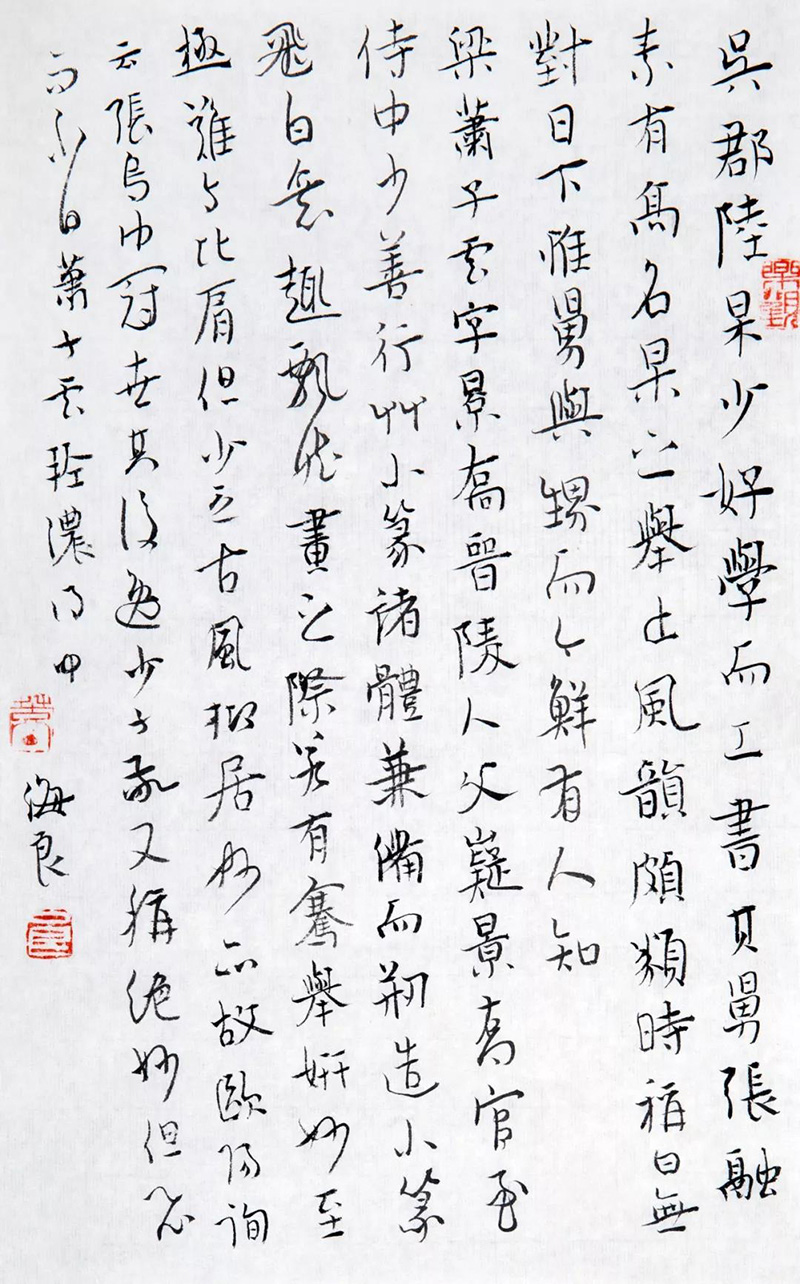 吳郡陸杲少好學而工書其舅張融
素有高名杲之舉止風韻頗類時稱曰無
對日下惟舅與甥而今鮮有人知
梁蕭子雲字景喬晉陵人父嶷景喬官至
侍中少善行艸小篆諸體兼備而剏造小篆
飛白意趣飄然畫之際若有騫舉妍妙至
極難与比肩但少乏古風居妙品故歐陽詢
云張烏巾冠世其後逸少子敬又稱絕妙但飛
而不白蕭子雲輕濃得中
海良